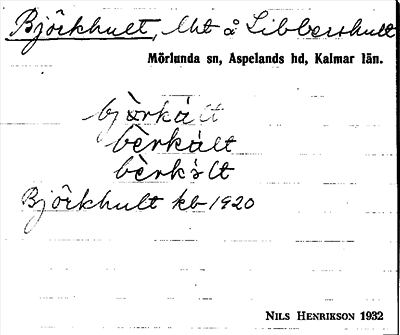 Björkhult, Uht å Libbershult
Mörlunda sn, Aspelands hd, Kalmar län.
bjòrkált
bèrkált
bèrkált
Björkhult kb 1920
NILS HENRIKSON 1932